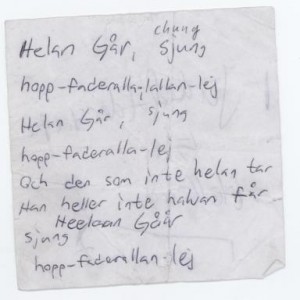 chung
Helan Går, Sjung
hopp-faderalla,lallan-lej
Helan Går, sjung
hopp-faderalla-lej
Och den som inte helan tar
Han heller inte halvan får
Heelaan Gåår
sjung
hopp-faderallan-lej